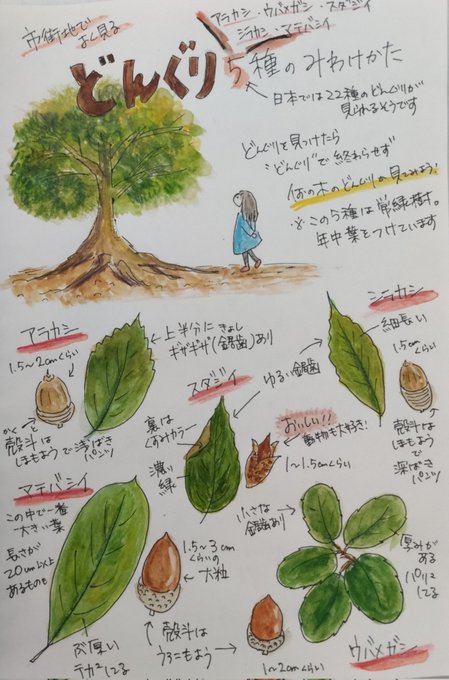 市街地で
よく見る
アラカシ・ウバメガシ・スダジイ
シラカシ・マテバシイ
どんぐり5種のみわけかた
日本では22種のどんぐりが
見られるそうです
どんぐりを見つけたら
"どんぐり"で終わらせず
何の木のどんぐりか見てみよう!
※この5種は常緑樹す。
年中葉をつけています
アラカシ
1.5~2cmくらい
上半分に
きょし
ギザギザ(鋸歯)あり
かくと
殻斗は
しまもようで浅ばき
パンツ
シラカシ
細長い
ゆるい鋸歯
1.5cm
くらい
殻斗は
しまもようで
深ばき
パンツ
スダジイ
裏は
くすみカラー
濃い
緑
おいしい!!
動物も大好き!
1~1.5cmくらい
マテバシイ
この中で一番
大きい葉
長さが
20cm以上
あるものも
ぶ厚い
テカってる
1.5~3cm
くらいの
大粒
殻斗は
うろこもよう
ウバメガシ
小さな
鋸歯あり
厚みが
ある
パリッと
してる
1~2cmくらい